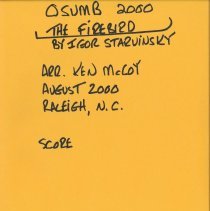 OSUMB 2000
THE FIREBIRD
BY IGOR STARVINSKY
ARR. KEN McCOY
AUGUST 2000
RALEIGH, N.C.
SCORE